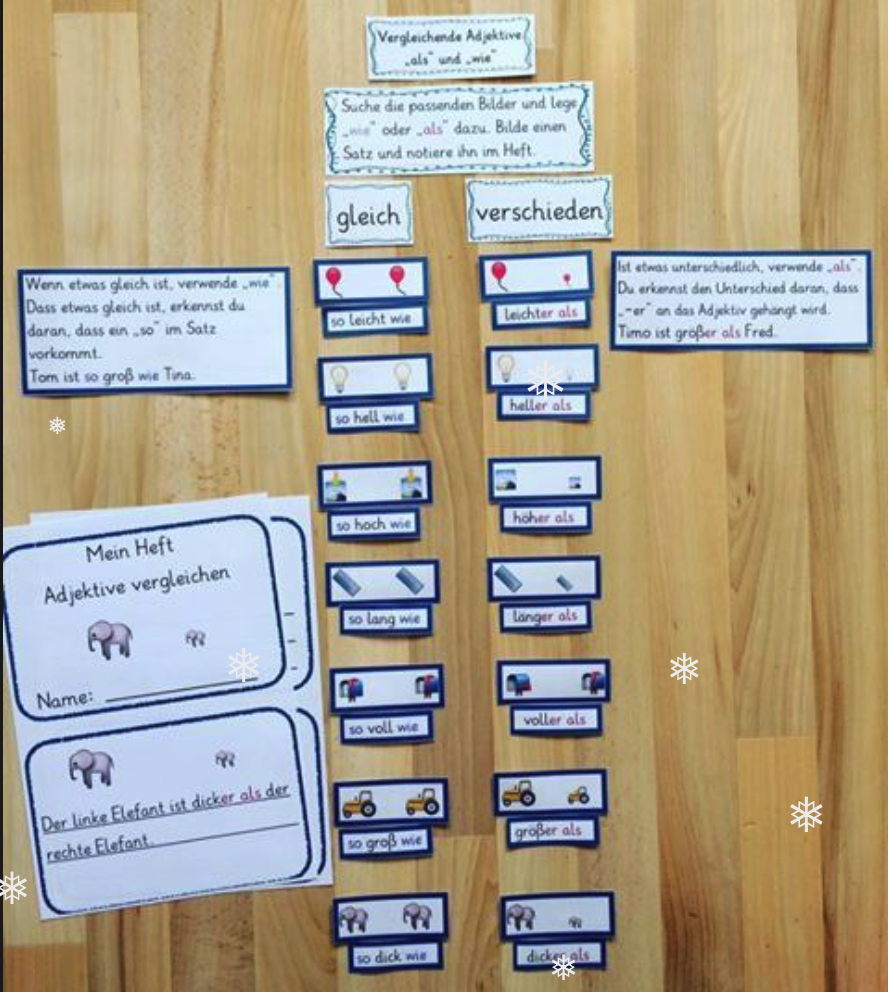 Vergleichende Adjektive
„als" und „wie"
Suche die passenden Bilder und lege
„wie" oder „als" dazu. Bilde einen
Satz und notiere ihn im Heft.
gleich
verschieden
Wenn etwas gleich ist, verwende „wie".
Dass etwas gleich ist, erkennst du
daran, dass ein „so" im Satz
vorkommt.
Tom ist so groß wie Tina.
Ist etwas unterschiedlich, verwende „als".
Du erkennst den Unterschied daran, dass
„-er" an das Adjektiv gehängt wird.
Timo ist größer als Fred.
so leicht wie
leichter als
so hell wie
heller als
so hoch wie
höher als
so lang wie
länger als
so voll wie
voller als
so groß wie
größer als
so dick wie
dicker als
Mein Heft
Adjektive vergleichen
Name:
Der linke Elefant ist dicker als der
rechte Elefant.